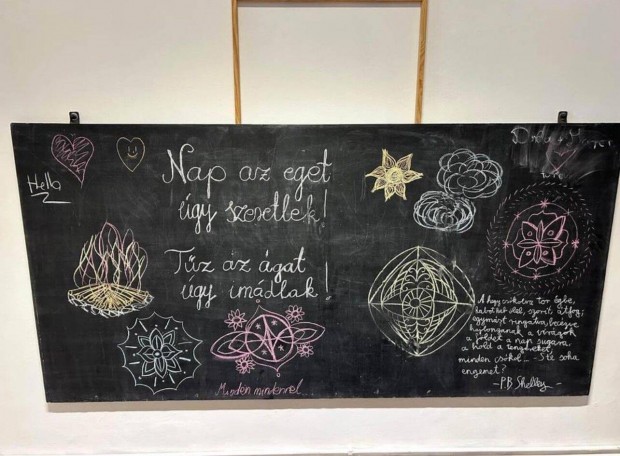 Hello
Nap az eget
úgy szeretlek!
Tűz az ágat
úgy imádlak!
Minden mindennel...
A hegy csókolva tör égbe,
habot hab ölel, szorit átfog;
egymást ringatva, becézve
hajlonganak a virágok
a földet a nap sugara,
a hold a tengereket
minden csókol... - S te soha
engemet?
- P.B. Shelley -